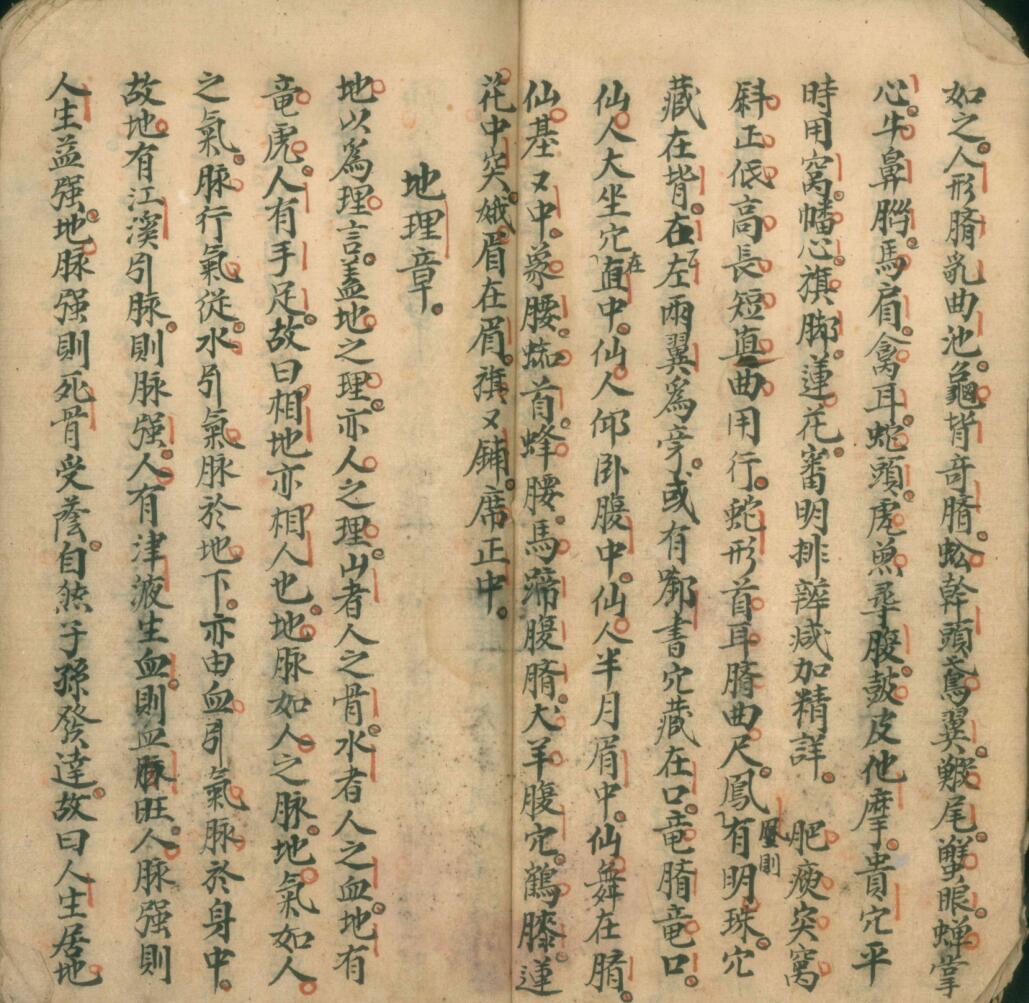 如之人形臍乳曲池龜背奇臍蚣幹頭鳶翼鰕尾蟹眼蟬掌
心牛鼻腦馬肩禽耳蛇頭虎魚尋腹鼓皮他摩貴穴平
時用窩幡心旗脚蓮花審明排辨减加精詳肥瘦突窩
斜正低高長短直曲用行蛇形首耳臍曲尺鳳有明珠穴
鳳則
藏在背在左兩翼爲旁或有鄒書穴藏在口竜臍竜口
仙人大坐穴直中仙人仰卧腹中仙人半月眉中仙舞在臍
在
仙基又中象腰蜘首蜂腰馬蹄腹臍犬羊腹穴鶴膝蓮
花中突娥眉在眉旗又鋪席正中
地理章
地以爲理言盖地之理亦人之理山者人之骨水者人之血地有
竜虎人有手足故曰相地亦相人也地脉如人之脉地氣如人
之氣脉行氣從水引氣脉於地下亦由血引氣脉於身中
故地有江溪引脉則脉强人有津液生血則血脉旺人脉强則
人生益强地脉强則死骨受蔭自然子孫發達故曰人生居地